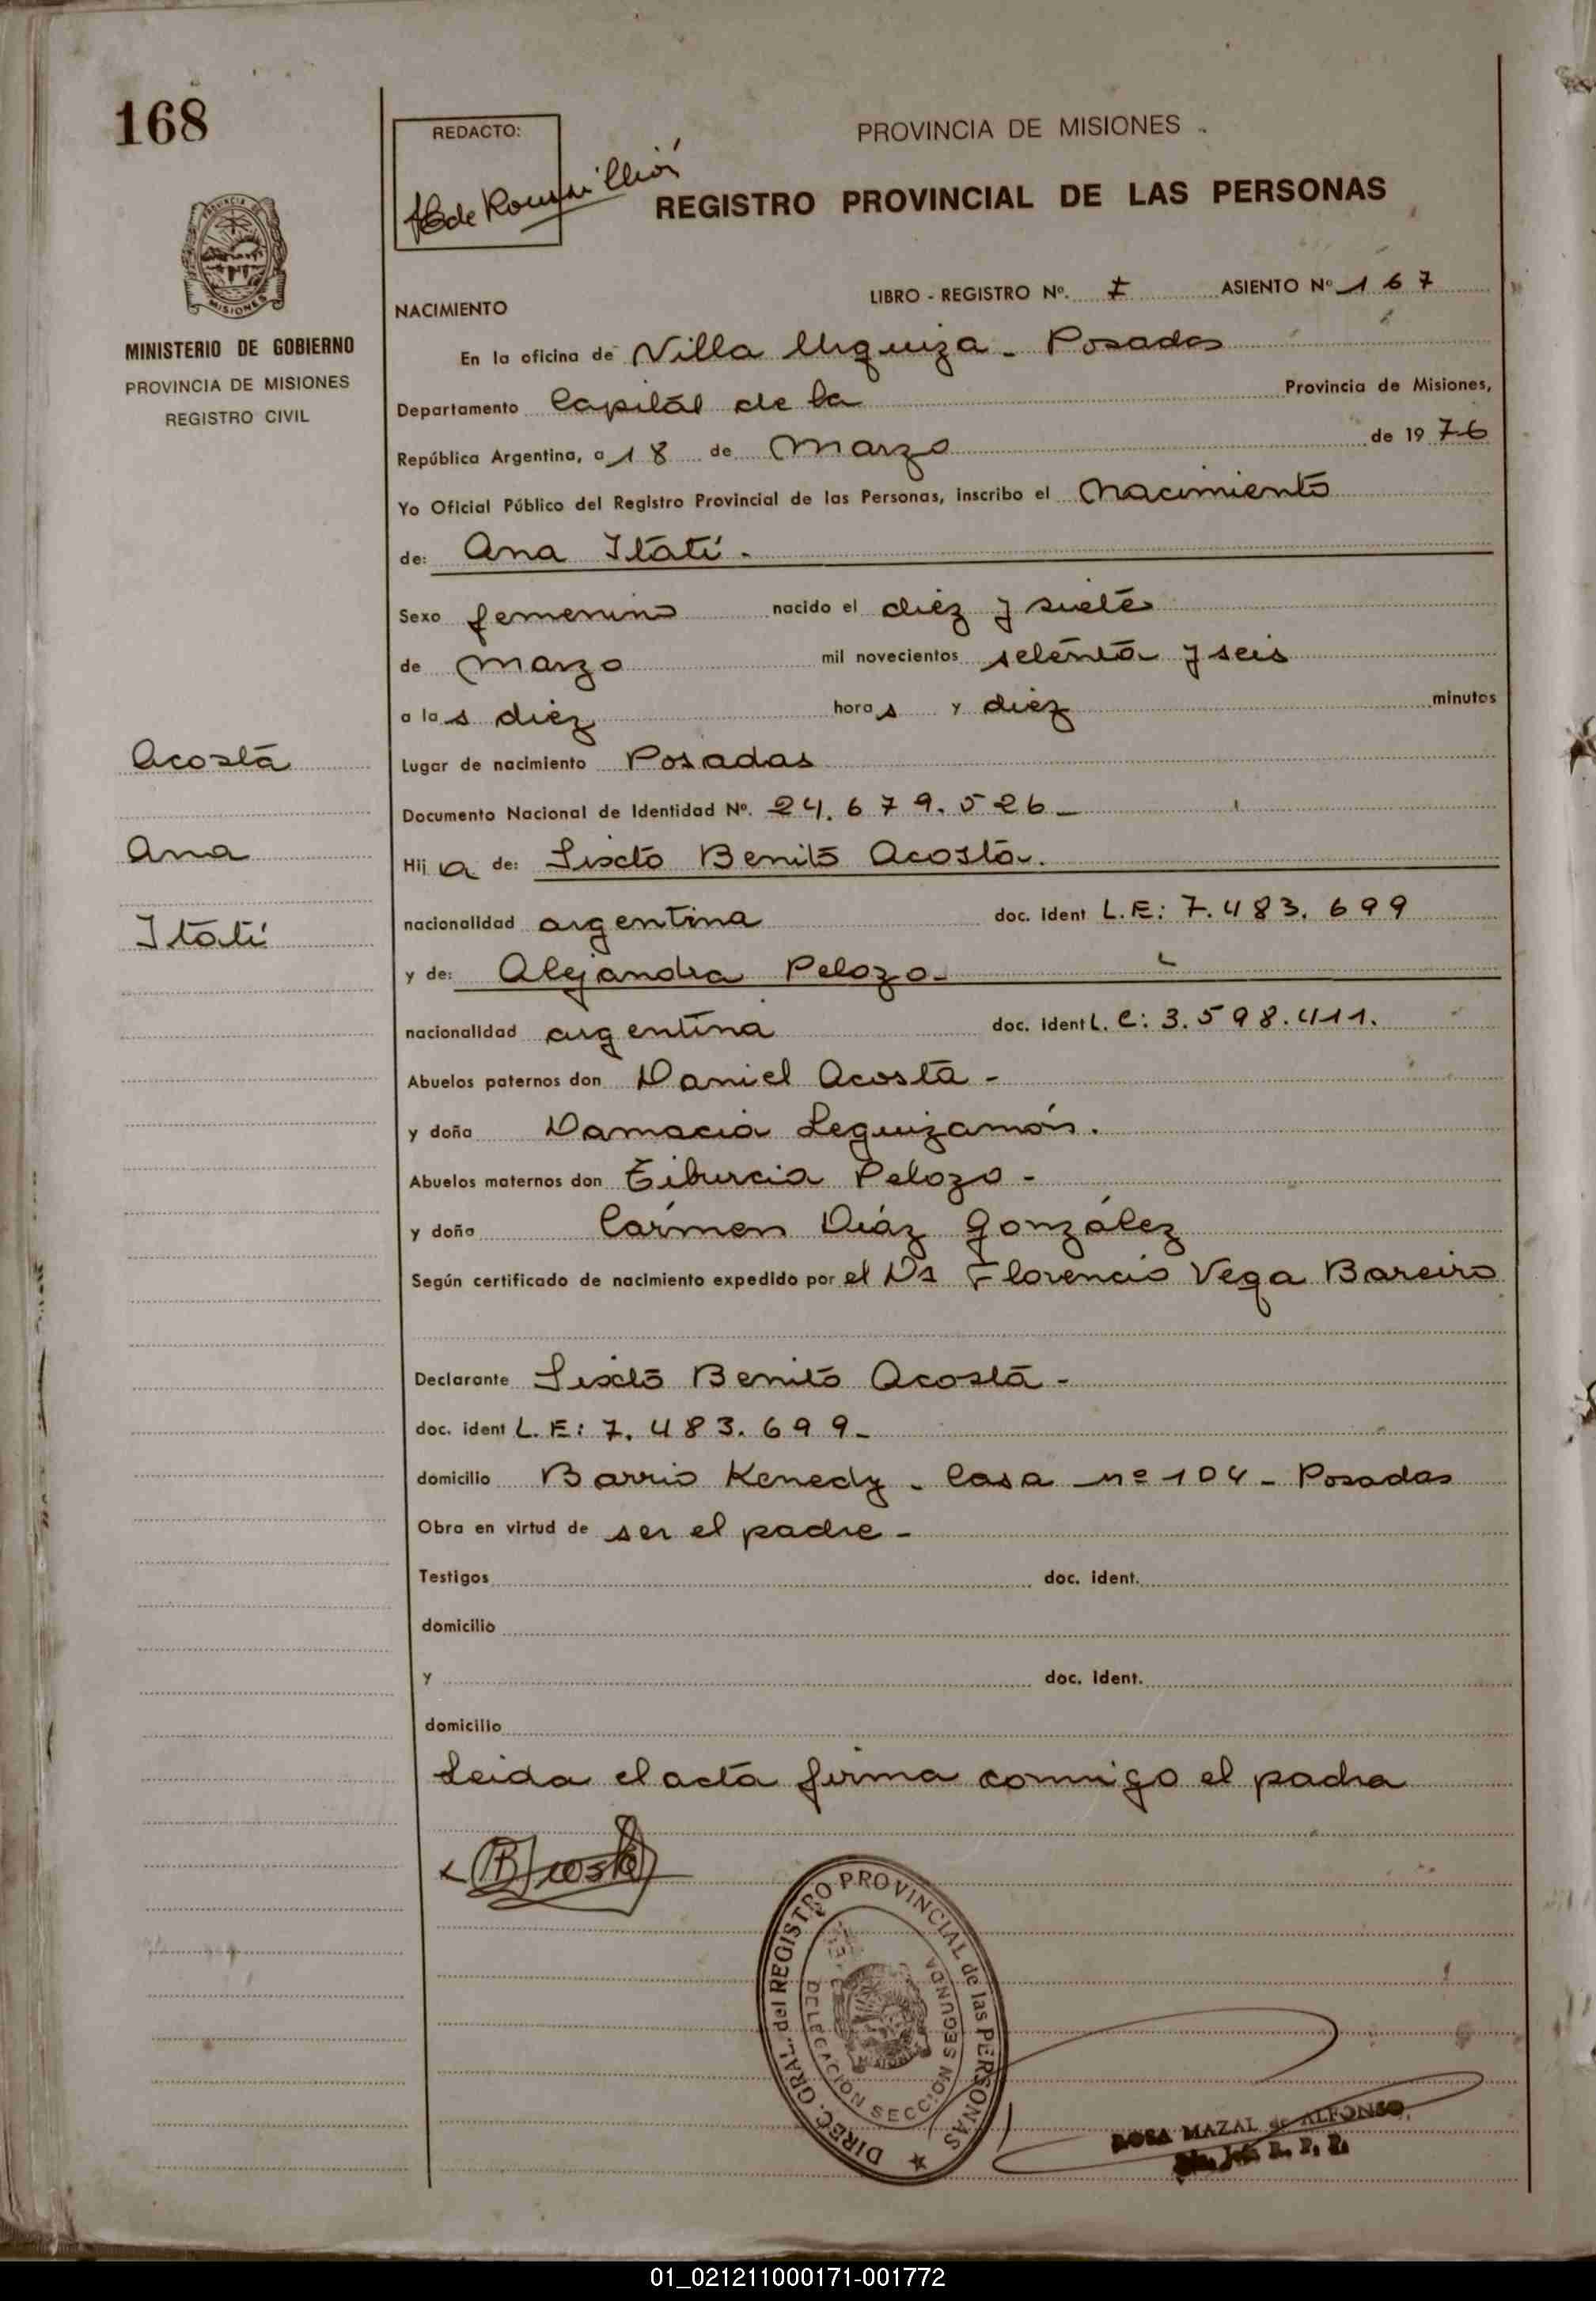 168
PROVINCIA DE MISIONES
MINISTERIO DE GOBIERNO
PROVINCIA DE MISIONES
REGISTRO CIVIL
Acosta
Ana
Itatí
REDACTO:
PROVINCIA DE MISIONES
REGISTRO PROVINCIAL DE LAS PERSONAS
NACIMIENTO LIBRO - REGISTRO Nº. I ASIENTO Nº 167
En la oficina de Villa Urquiza - Posadas
Departamento Capital de la Provincia de Misiones,
República Argentina, a 18 de Marzo de 1976
Yo Oficial Público del Registro Provincial de las Personas, inscribo el Nacimiento
de: Ana Itatí.
Sexo femenino nacido el diez y siete
de Marzo mil novecientos setenta y seis
a las diez horas y diez minutos
Lugar de nacimiento Posadas
Documento Nacional de Identidad Nº. 24.679.526
Hija de: Sixto Benito Acosta.
nacionalidad argentina doc. ident L.E: 7.483.699
y de: Alejandra Pelozo-
nacionalidad argentina doc. ident L.C: 3.598.411.
Abuelos paternos don Daniel Acosta -
y doña Damacia Leguizamón.
Abuelos maternos don Tiburcia Pelozo -
y doña Cármen Diáz González
Según certificado de nacimiento expedido por el Dr Florencio Vega Bareiro
Declarante Sixto Benito Acosta -
doc. ident L.E: 7.483.699-
domicilio Barrio Kenedy. Casa nº 104 - Posadas
Obra en virtud de ser el padre -
Testigos doc. ident.
domicilio
y doc. Ident.
domicilio
Leida el acta firma conmigo el padre
DIREC. GRAL. del REGISTRO PROVINCIAL de las PERSONAS
DELEGACION SECCION SEGUNDA
ROSA MAZAL de ALFONSO
R. P. P.
01_021211000171-001772